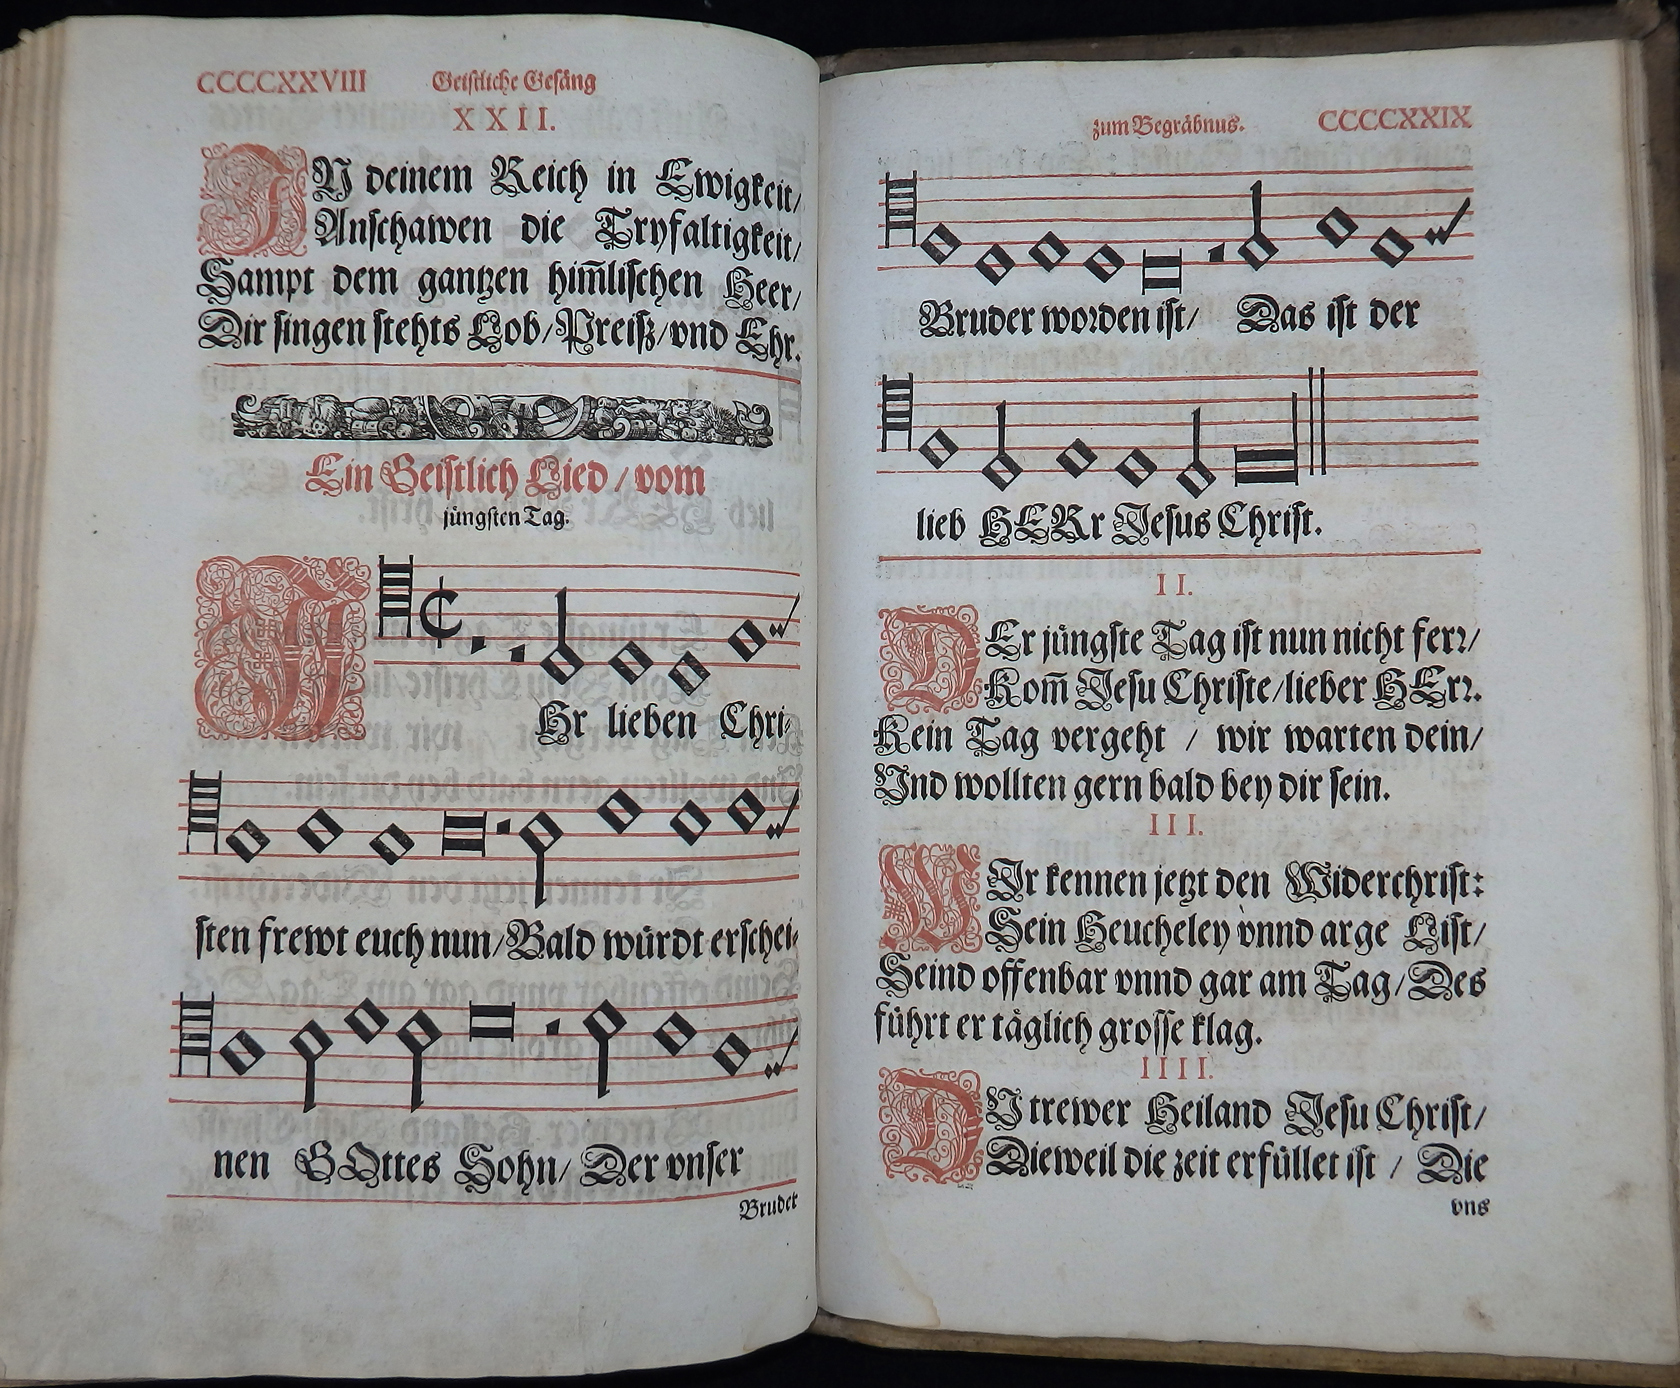 CCCCXXVIII Geistliche Gesäng
XXII.
IN deinem Reich in Ewigkeit/
Anschawen die Tryfaltigkeit/
Sampt dem gantzen him̃lischen Heer/
Dir singen stehts Lob/Preiß/vnd Ehr.
Ein Geistlich Lied/vom
jüngsten Tag.
IHr lieben Chri-
sten frewt euch nun/Bald würdt erschei-
nen GOttes Sohn/Der vnser
Bruder
zum Begräbnus. CCCCXXIX
Bruder worden ist/ Das ist der
lieb HERr Jesus Christ.
II.
DEr jüngste Tag ist nun nicht ferr/
Kom̃ Jesu Christe/lieber HErr.
Kein Tag vergeht / wir warten dein/
Vnd wollten gern bald bey dir sein.
III.
WIr kennen jetzt den Widerchrist:
Sein Heucheley vnnd arge List/
Seind offenbar vnnd gar am Tag/Des
führt er täglich grosse klag.
IIII.
DV trewer Heiland Jesu Christ/
Dieweil die zeit erfüllet ist / Die
vns